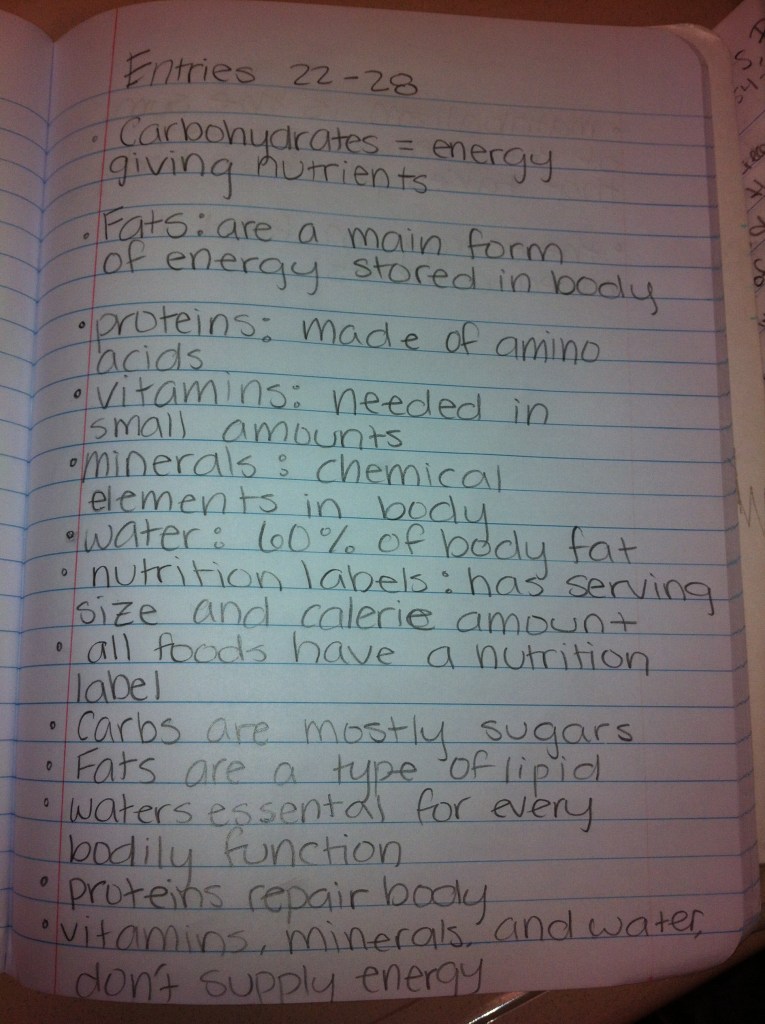 Entries 22-28
• Carbohydrates = energy
giving nutrients
• Fats: are a main form
of energy stored in body
• proteins: made of amino
acids
• vitamins: needed in
small amounts
• minerals: chemical
elements in body
• water: 60% of body fat
• nutrition labels: has serving
size and calerie amount
• all foods have a nutrition
label
• Carbs are mostly sugars
• Fats are a type of lipid
• waters essental for every
bodily function
• proteins repair body
• vitamins, minerals, and water,
don't supply energy